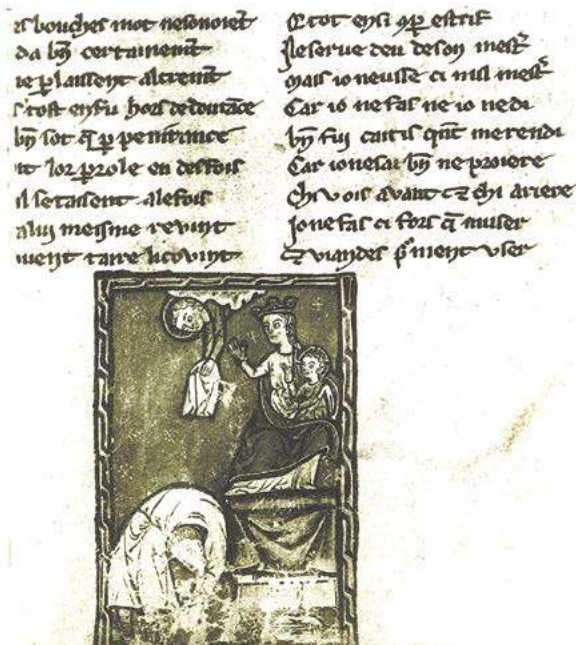 bouches mot nesonoiēt
da bn̄ certainemt̄
plaissent altremt̄
tost enfu hors dedoutāce
bn̄ sot q̄ p̱ penitance
nt lor p̱role en desfois
il setaisent alefois
alui meisme revint
uient taire licovint
E tot ensi p̱ estrif
Ile serve deu deson mest̄
Mais io neusse ci nul mest̄
Car io ne fas ne io nedi
bn̄ fui caitis qn̄t merendi
Car ionesai bn̄ ne proiere
Chi vois avant ⁊ chi ariere
Jonefas ci fors q̄ muser
⁊ viandes p̄ nient user